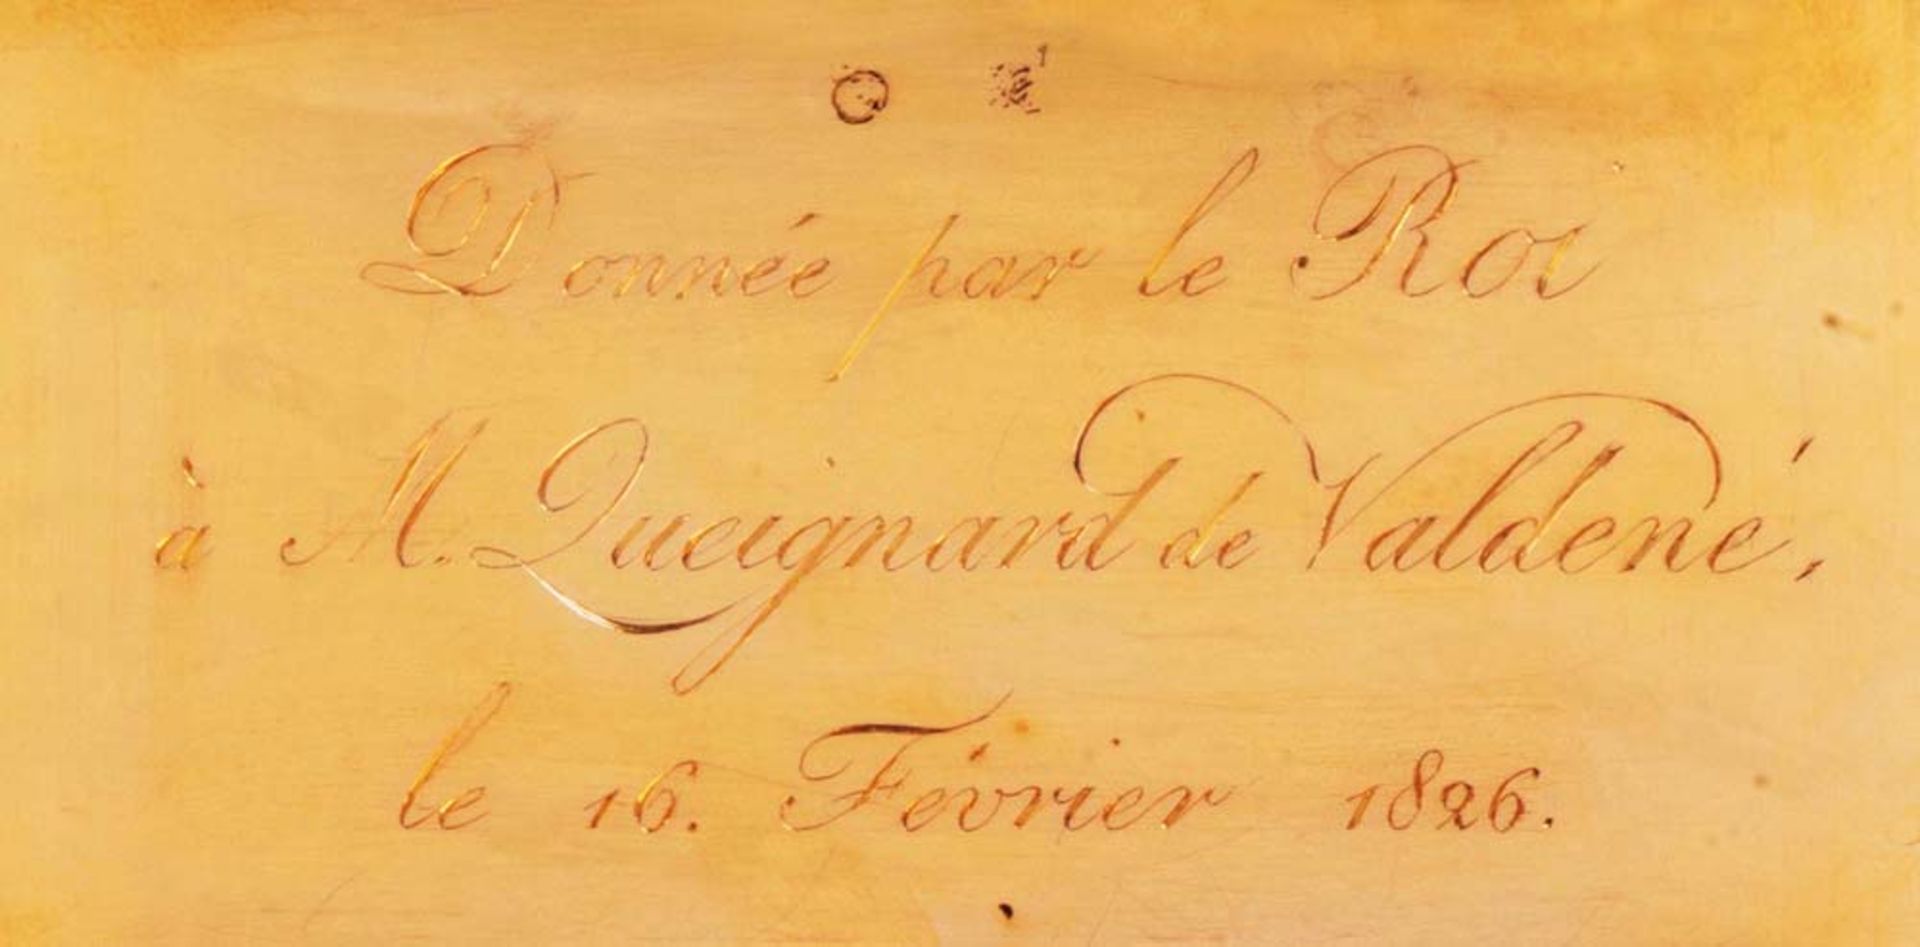 Donnée par le Roi
à M. Queignard de Valdené,
le 16. Février 1826.